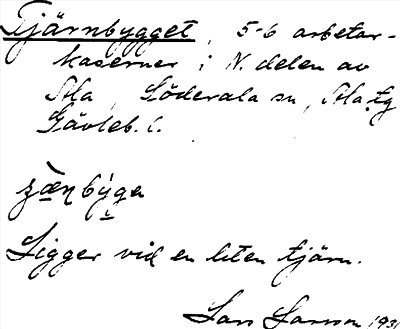 Tjärnbygget, 5-6 arbetar-
kaserner i N. delen av
Ala, Söderala sn, Ala tg
Gävleb. l.
Ligger vid en liten tjärn.
Lars Larson 193